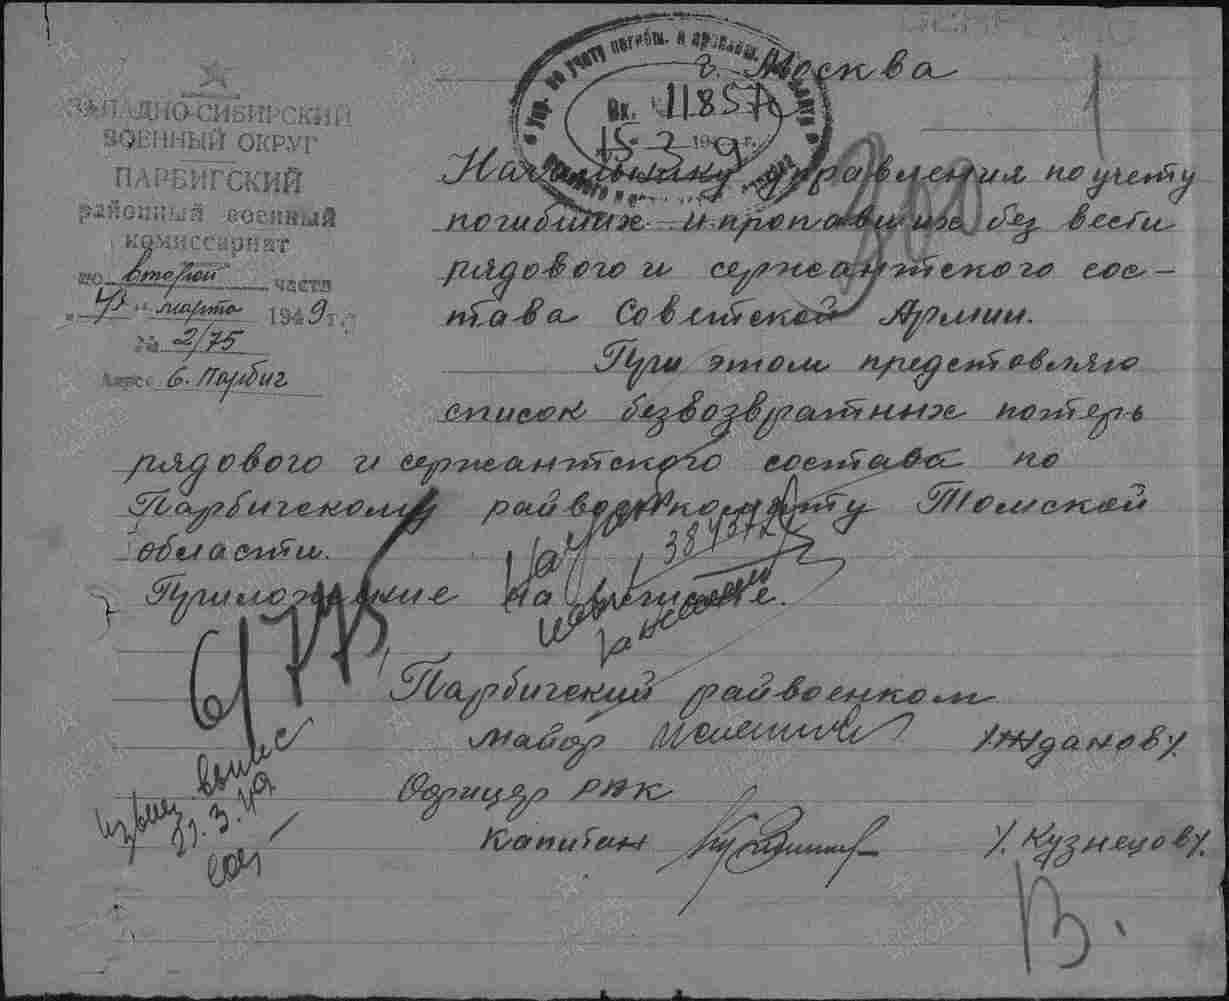 ЗАПАДНО-СИБИРСКИЙ
ВОЕННЫЙ ОКРУГ
ПАРБИГСКИЙ
районный военный
комиссариат
по второй части
марта 1949 г.
№ 2/75
Адрес с. Парбиг
Упр. по учету погибш. и пропавш.
Вх. 11857
15 3 1949 г.
г. Москва
1
Начальнику управления по учету
погибших и пропавших без вести
рядового и сержантского сос-
тава Советской Армии.
При этом предстовляю
список безвозвратных потерь
рядового и сержантского состава по
Парбигскому райвоенкомату Томской
области.
Приложение на листе.
Парбигский райвоенком
майор /Жданов/.
Офицер РВК
капитан /.Кузнецов/.
21.3.49
В.
ПАМЯТЬ НАРОДА